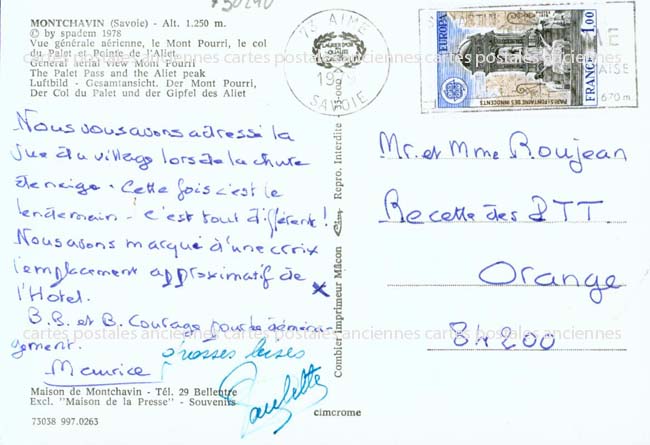 730290
MONTCHAVIN (Savoie) - Alt. 1.250 m.
© by spadem 1978
Vue générale aérienne, le Mont Pourri, le col
du Palet et Pointe de l'Aliet
General aerial view Mont Pourri
The Palet Pass and the Aliet peak
Luftbild - Gesamtansicht. Der Mont Pourri,
Der Col du Palet und der Gipfel des Aliet
Nous vous avons adressé la
vue du village lors de la chute
de neige. Cette fois c'est le
lendemain - c'est tout différent!
Nous avons marqué d'une croix
l'emplacement approximatif de x
l'Hotel.
B.B. et B. Courage pour le déména-
gement.
Maurice
Grosses bises
Paulette
Maison de Montchavin - Tél. 29 Bellentre
Excl. "Maison de la Presse" - Souvenirs
73038 997.0263
cimcrome
Combier Imprimeur Mâcon Cim Repro. Interdite
73 AIME
SAVOIE
EUROPA
1,00
FRANCE
PARIS-FONTAINE DES INNOCENTS
670 m
Mr. et Mme Roujean
Recette des PTT.
Orange
84200
cartes postales anciennes cartes postales anciennes cartes postales anciennes
cartes postales anciennes cartes postales anciennes cartes postales anciennes